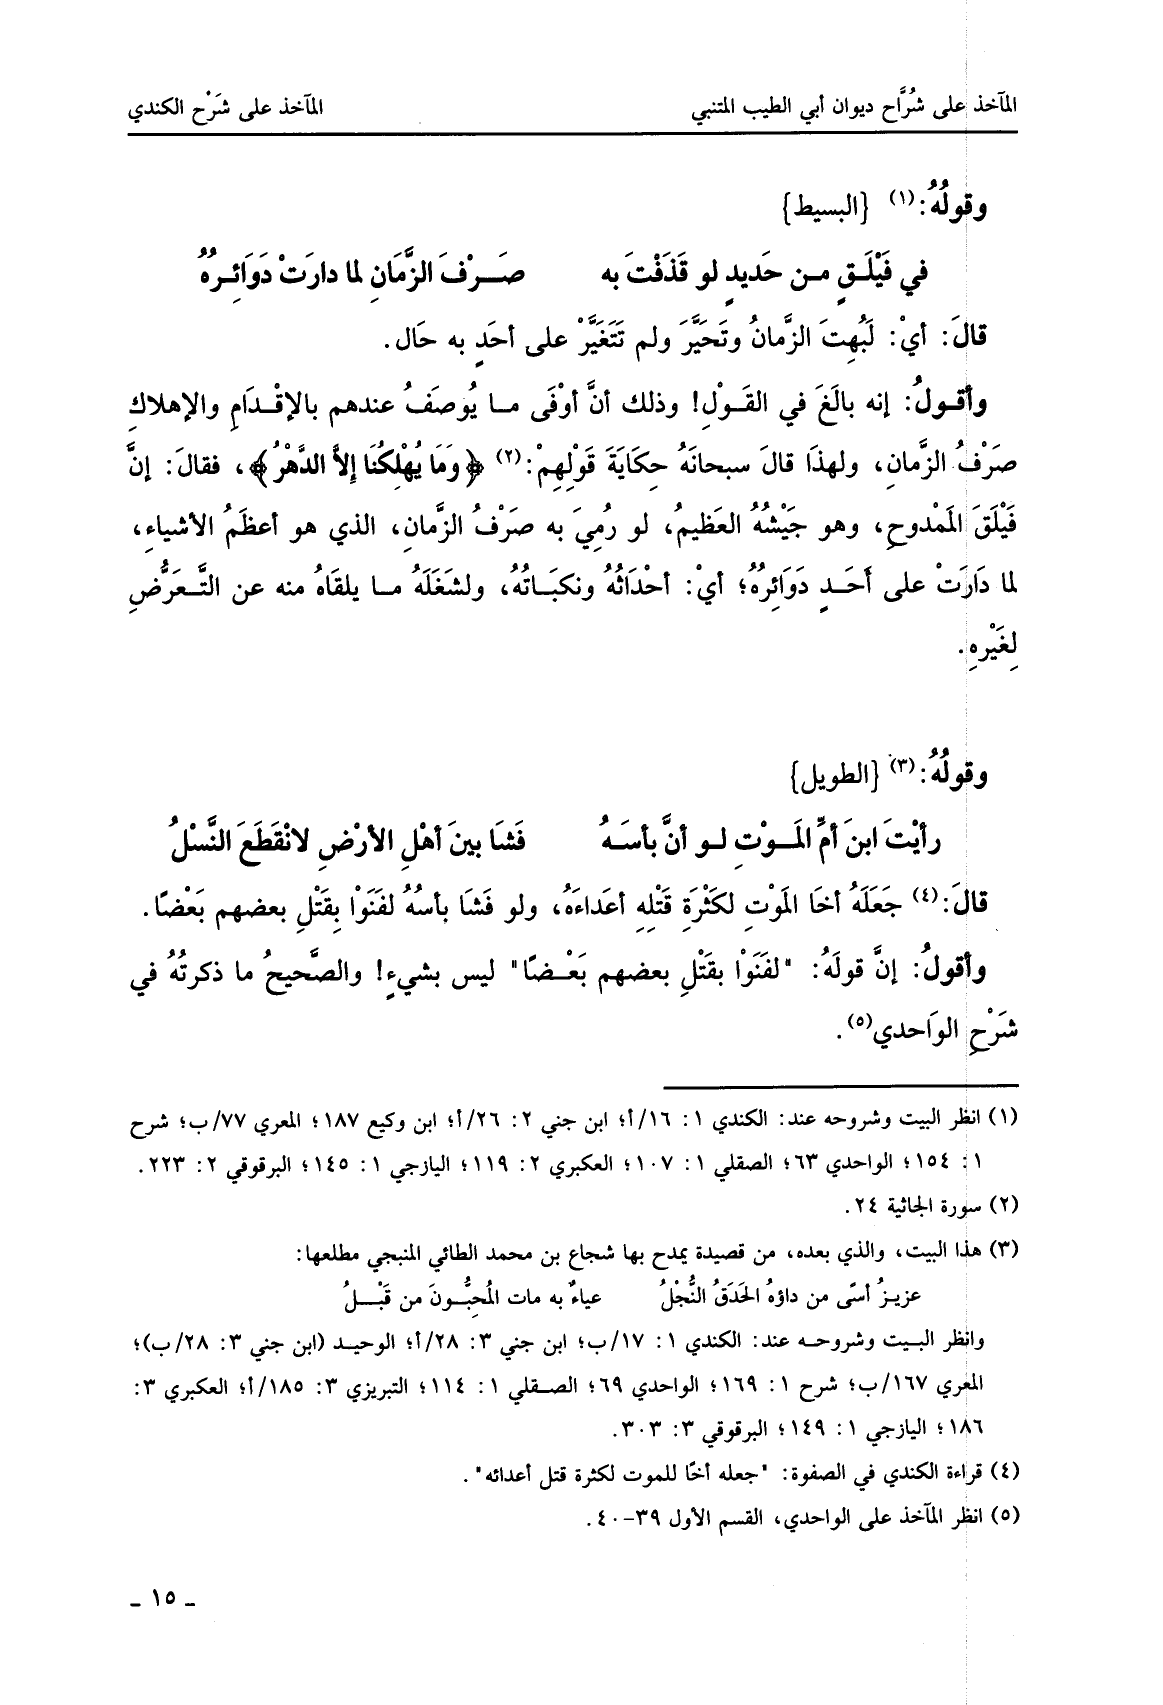 المآخذ على شُرَّاح ديوان أبي الطيب المتنبي المآخذ على شَرْح الكندي
وقولُهُ:(١) {البسيط}
في فَيْلَقٍ من حَديدٍ لو قَذَفْتَ به صَرْفَ الزَّمَانِ لما دارَتْ دَوَائِرهُ
قالَ: أيْ: لَبُهِتَ الزَّمانُ وتَحَيَّرَ ولم تَتَغَيَّرْ على أحَدٍ به حَال.
وأقولُ: إنه بالَغَ في القَوْلِ! وذلك أنَّ أوْفَى ما يُوصَفُ عندهم بالإقْدَامِ والإهلاكِ
صَرْفُ الزَّمانِ، ولهذَا قالَ سبحانَهُ حِكايَةَ قَوْلِهِمْ:(٢) ﴿وَمَا يُهْلِكُنَا إِلاَّ الدَّهْرُ﴾، فقالَ: إنَّ
فَيْلَقَ المَمْدوحِ، وهو جَيْشُهُ العَظيمُ، لو رُمِيَ به صَرْفُ الزَّمانِ، الذي هو أعظَمُ الأشياءِ،
لما دَارَتْ على أَحَدٍ دَوَائِرُهُ؛ أيْ: أحْدَاثُهُ ونكبَاتُهُ، ولشَغَلَهُ ما يلقَاهُ منه عن التَّعَرُّضِ
لِغَيْرهِ.
وقولُهُ:(٣) {الطويل}
رأيْتَ ابنَ أمِّ المَوْتِ لو أنَّ بأسَهُ فَشَا بينَ أهْلِ الأرْضِ لانْقَطَعَ النَّسْلُ
قالَ:(٤) جَعَلَهُ أخَا المَوْتِ لكَثْرَةِ قَتْلِهِ أعدَاءَهُ، ولو فَشَا بأسُهُ لفَنَوْا بِقَتْلِ بعضهم بَعْضًا.
وأقولُ: إنَّ قولَهُ: "لفَنَوْا بقَتْلِ بعضهم بَعْضًا" ليس بشيءٍ! والصَّحيحُ ما ذكرتُهُ في
شَرْحِ الوَاحدي(٥).
(١) انظر البيت وشروحه عند: الكندي ١: ١٦/أ؛ ابن جني ٢: ٢٦/أ؛ ابن وكيع ١٨٧؛ المعري ٧٧/ب؛ شرح
١: ١٥٤؛ الواحدي ٦٣؛ الصقلي ١: ١٠٧؛ العكبري ٢: ١١٩؛ اليازجي ١: ١٤٥؛ البرقوقي ٢: ٢٢٣.
(٢) سورة الجاثية ٢٤.
(٣) هذا البيت، والذي بعده، من قصيدة يمدح بها شجاع بن محمد الطائي المنبجي مطلعها:
عزيزُ أسًى من داؤهُ الحَدَقُ النُّجْلُ عياءٌ به مات المُحِبُّونَ من قَبْلُ
وانظر البيت وشروحه عند: الكندي ١: ١٧/ب؛ ابن جني ٣: ٢٨/أ؛ الوحيد (ابن جني ٣: ٢٨/ب)؛
المعري ١٦٧/ب؛ شرح ١: ١٦٩؛ الواحدي ٦٩؛ الصقلي ١: ١١٤؛ التبريزي ٣: ١٨٥/أ؛ العكبري ٣:
١٨٦؛ اليازجي ١: ١٤٩؛ البرقوقي ٣: ٣٠٣.
(٤) قراءة الكندي في الصفوة: "جعله أخًا للموت لكثرة قتل أعدائه".
(٥) انظر المآخذ على الواحدي، القسم الأول ٣٩-٤٠.
ـ ١٥ ـ